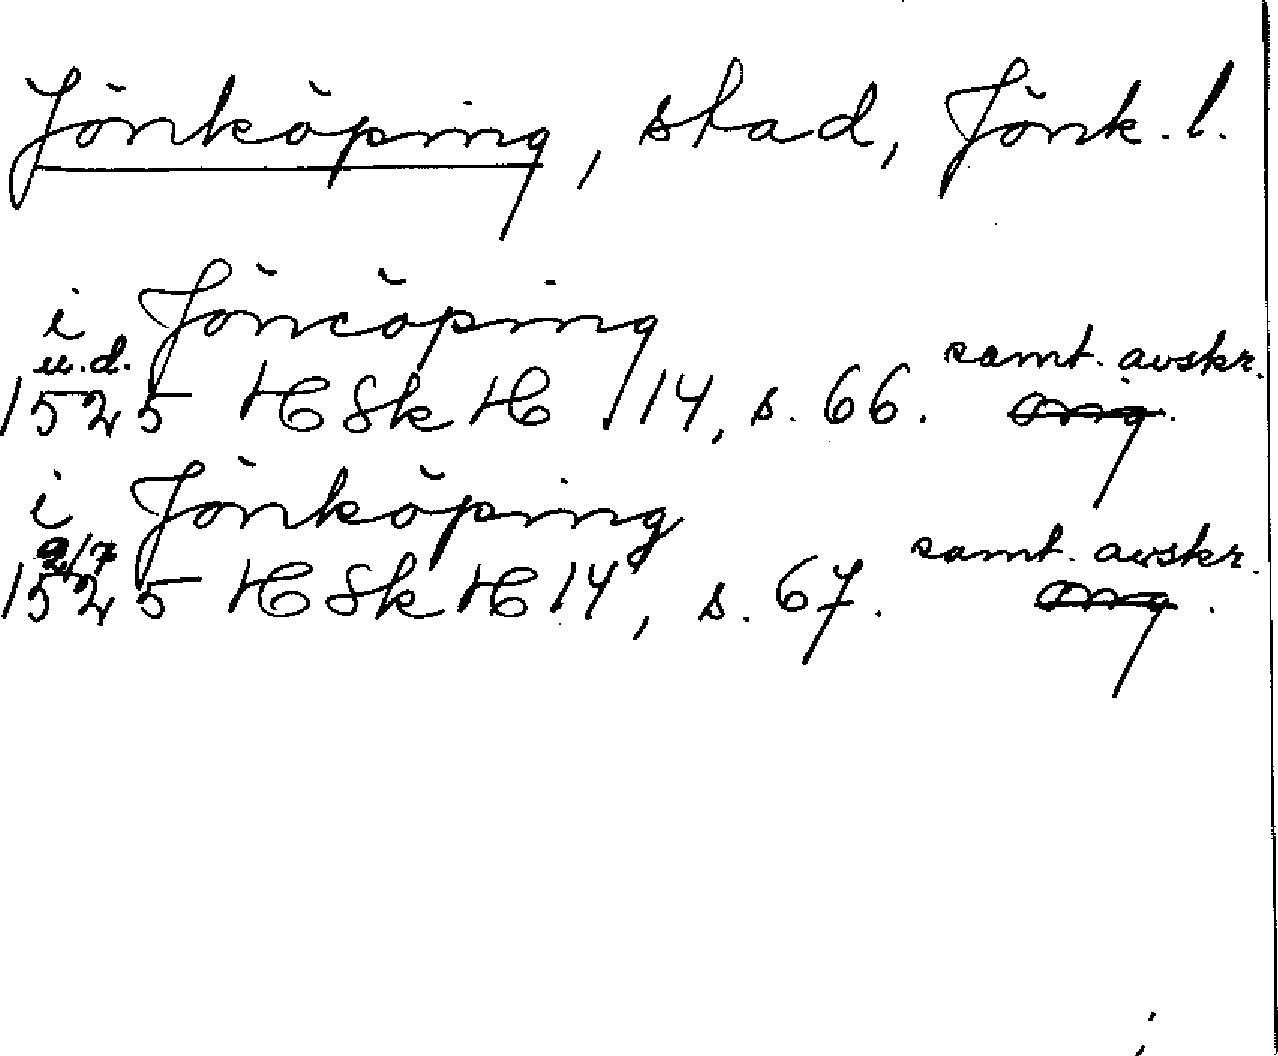 Jönköping, stad, Jönk. l.
i Jöncöping
u.d. samt. avskr.
1525 HSkH 14, s. 66. orig.
i Jönköping
9/7 samt. avskr.
1525 HSkH 14, s. 67. orig.